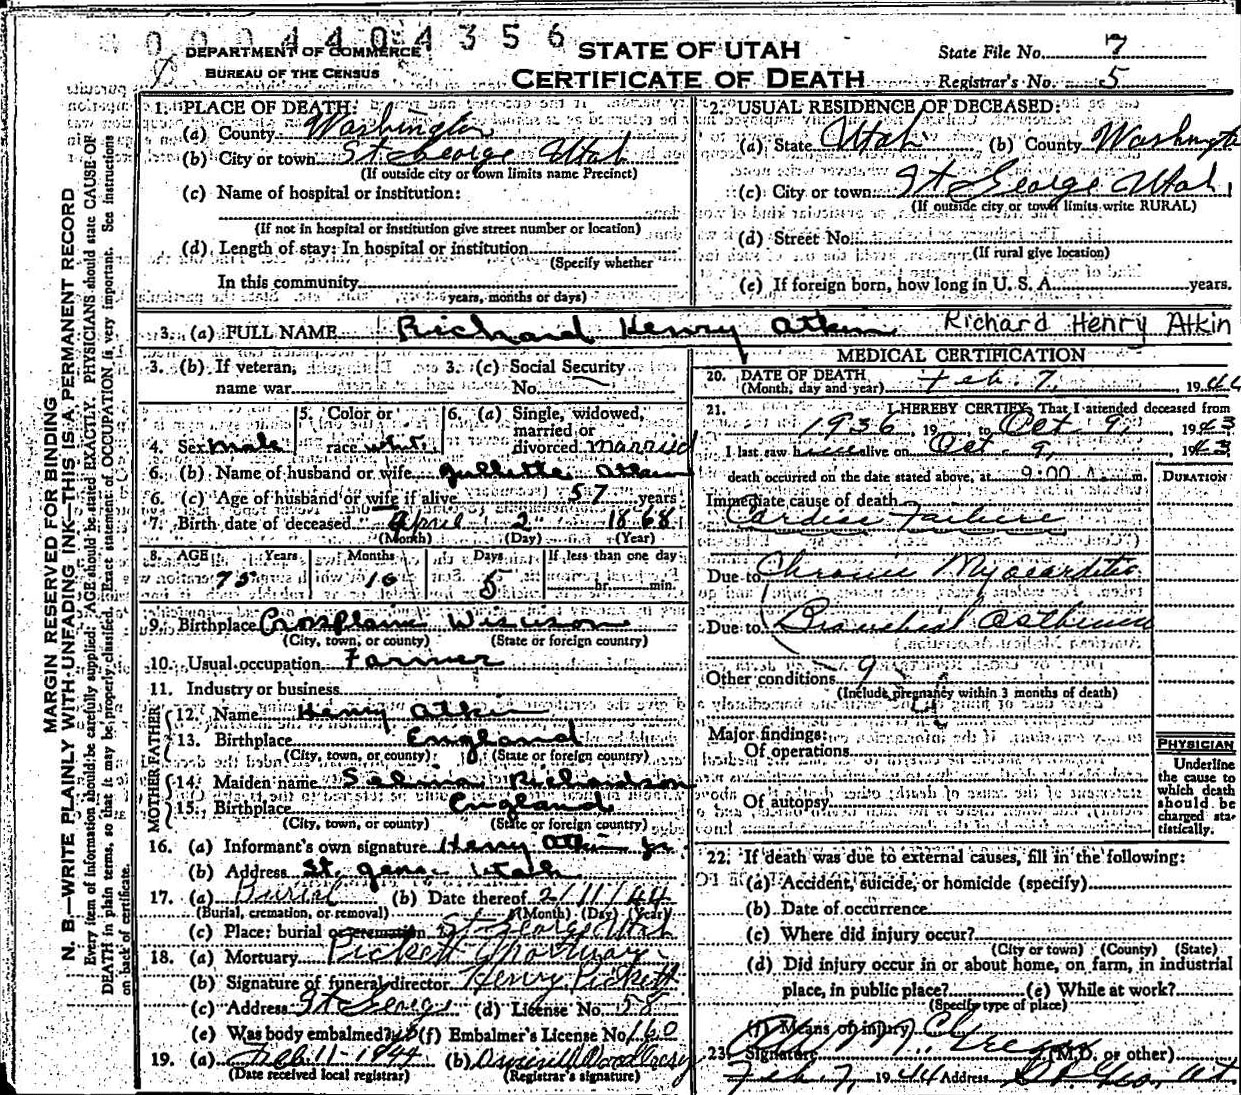 0 0 0 4 4 0 4 3 5 6
DEPARTMENT OF COMMERCE
BUREAU OF THE CENSUS
STATE OF UTAH
CERTIFICATE OF DEATH
State File No. 7
Registrar's No. 5
MARGIN RESERVED FOR BINDING
N. B.—WRITE PLAINLY WITH UNFADING INK—THIS IS A PERMANENT RECORD
Every item of information should be carefully supplied. AGE should be stated EXACTLY. PHYSICIANS should state CAUSE OF
DEATH in plain terms, so that it may be properly classified. Exact statement of OCCUPATION is very important. See instructions
on back of certificate.
1. PLACE OF DEATH:
(a) County Washington
(b) City or town St George Utah
(If outside city or town limits name Precinct)
(c) Name of hospital or institution:
(If not in hospital or institution give street number or location)
(d) Length of stay: In hospital or institution
(Specify whether
In this community
years, months or days)
2. USUAL RESIDENCE OF DECEASED:
(a) State Utah (b) County Washington
(c) City or town St George Utah
(If outside city or town limits write RURAL)
(d) Street No.
(If rural give location)
(e) If foreign born, how long in U. S. A. years.
3. (a) FULL NAME Richard Henry Atkin Richard Henry Atkin
3. (b) If veteran, name war
3. (c) Social Security No.
4. Sex male
5. Color or race white
6. (a) Single, widowed, married or divorced married
6. (b) Name of husband or wife Jullette Atkin
6. (c) Age of husband or wife if alive 57 years
7. Birth date of deceased April 2 1868
(Month) (Day) (Year)
8. AGE Years Months Days If less than one day
75 10 5 hr. min.
9. Birthplace
(City, town, or county) (State or foreign country)
10. Usual occupation Farmer
11. Industry or business
FATHER
12. Name Henry Atkin
13. Birthplace England
(City, town, or county) (State or foreign country)
MOTHER
14. Maiden name Selina Richardson
15. Birthplace England
(City, town, or county) (State or foreign country)
16. (a) Informant's own signature Henry Atkin Jr
(b) Address St. George Utah
17. (a) Burial (b) Date thereof 2/11/44
(Burial, cremation, or removal) (Month) (Day) (Year)
(c) Place: burial or cremation St George Utah
18. (a) Mortuary Pickett Mortuary
(b) Signature of funeral director Henry Pickett
(c) Address St George (d) License No. 58
(e) Was body embalmed? (f) Embalmer's License No. 160
19. (a) Feb 11-1944 (b)
(Date received local registrar) (Registrar's signature)
MEDICAL CERTIFICATION
20. DATE OF DEATH
(Month, day and year) Feb. 7, 1944
21. I HEREBY CERTIFY, That I attended deceased from
1936, 19 , to Oct 9, 1943
I last saw him alive on Oct. 9, 1943
death occurred on the date stated above, at 9:00 A. m.
DURATION
Immediate cause of death
Cardiac Failure
Due to Chronic Myocarditis
Due to Bronchial Asthma
Other conditions
(Include pregnancy within 3 months of death)
Major findings:
Of operations
Of autopsy
PHYSICIAN
Underline
the cause to
which death
should be
charged sta-
tistically.
22. If death was due to external causes, fill in the following:
(a) Accident, suicide, or homicide (specify)
(b) Date of occurrence
(c) Where did injury occur?
(City or town) (County) (State)
(d) Did injury occur in or about home, on farm, in industrial
place, in public place? (e) While at work?
(Specify type of place)
(f) Means of injury
23. Signature (M.D. or other)
Feb 7, 1944 Address St. Geo. Ut.